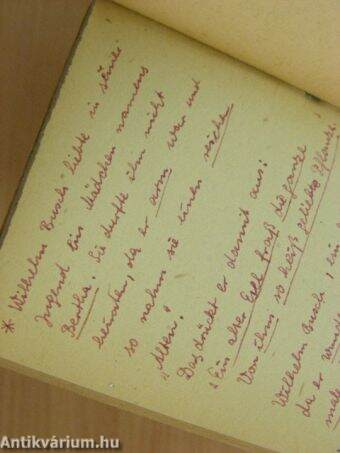 * Wilhelm Busch liebte in seiner
Jugend ein Mädchen namens
Bertha. Sie durfte ihn nicht
heiraten, da er arm war und
so nahm sie einen reichen
"Alten".
Das drückt er damit aus:
"Ein alter Esel fraß die ganze
Von ihm so heiß geliebte Pflanze.
Wilhelm Busch, ein
da er
male
Antikvárium.hu